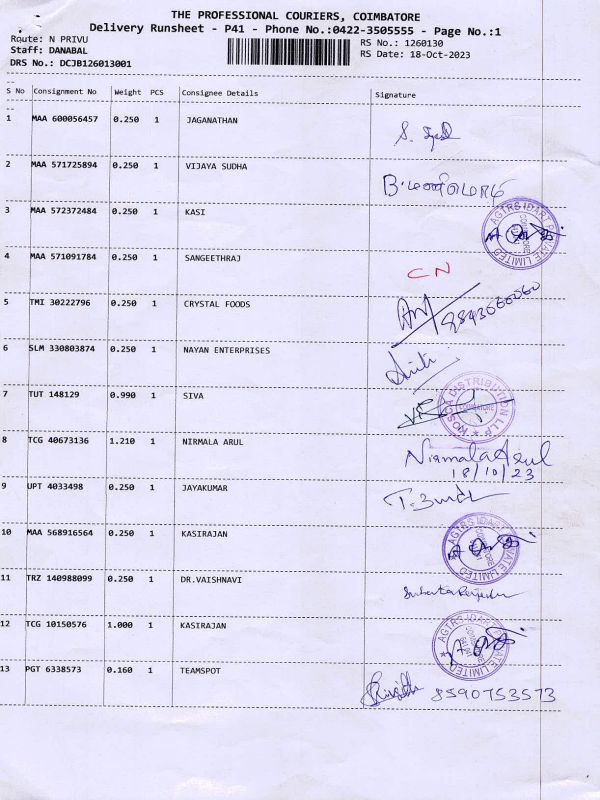 THE PROFESSIONAL COURIERS, COIMBATORE
Delivery Runsheet - P41 - Phone No.:0422-3505555 - Page No.:1
Route: N PRIVU RS No.: 1260130
Staff: DANABAL RS Date: 18-Oct-2023
DRS No.: DCJB126013001
S No Consignment No Weight PCS Consignee Details Signature
1 MAA 600056457 0.250 1 JAGANATHAN
2 MAA 571725894 0.250 1 VIJAYA SUDHA
3 MAA 572372484 0.250 1 KASI AGTRS IDART PRIVATE LIMITED
4 MAA 571091784 0.250 1 SANGEETHRAJ CN
5 TMI 30222796 0.250 1 CRYSTAL FOODS
6 SLM 330803874 0.250 1 NAYAN ENTERPRISES
7 TUT 148129 0.990 1 SIVA DISTRIBUTION LLP COIMBATORE
8 TCG 40673136 1.210 1 NIRMALA ARUL Nirmala Arul
18/10/23
9 UPT 4033498 0.250 1 JAYAKUMAR
10 MAA 568916564 0.250 1 KASIRAJAN AGTRS IDART PRIVATE LIMITED
11 TRZ 140988099 0.250 1 DR.VAISHNAVI
12 TCG 10150576 1.000 1 KASIRAJAN AGTRS IDART PRIVATE LIMITED
13 PGT 6338573 0.160 1 TEAMSPOT 8590753573